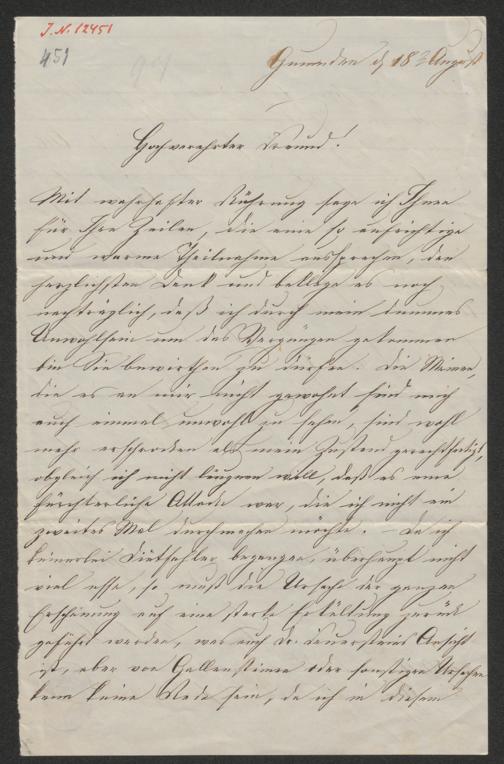 J.N. 12451
451
Gmunden d 18 August
Hochverehrter Freund!
Mit wahrhafter Rührung sage ich Ihnen
für Ihre Zeilen, die eine so aufrichtige
und warme Theilnahme aussprechen, den
herzlichsten Dank und beklage es noch
nachträglich, daß ich durch mein dummes
Unwohlsein um das Vergnügen gekommen
bin Sie bewirthen zu dürfen. Die Meinen,
die es an mir nicht gewohnt sind mich
auch einmal unwohl zu sehen, sind wohl
mehr erschrocken als mein Zustand gerechtfertigt,
obgleich ich nicht läugnen will, daß es eine
fürchterliche Attacke war, die ich nicht ein
zweites Mal durchmachen möchte. – Da ich
keinerlei Diätfehler begangen, überhaupt nicht
viel esse, so muß die Ursache der ganzen
Erscheinung auf eine starke Erkältung zurück
geführt werden, was auch Dr. Feuersteins Ansicht
ist, aber von Gallensteinen oder sonstigen Ursachen
kann keine Rede sein, da ich in diesem